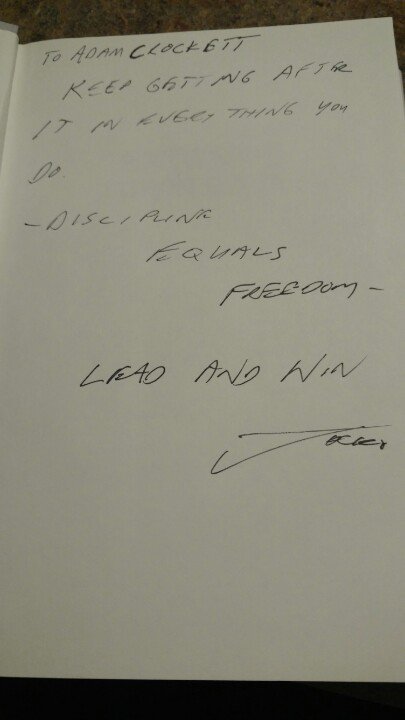 TO ADAM CROCKETT
KEEP GETTING AFTER
IT IN EVERYTHING YOU
DO.
-DISCIPLINE
EQUALS
FREEDOM-
LEAD AND WIN
JOCKO